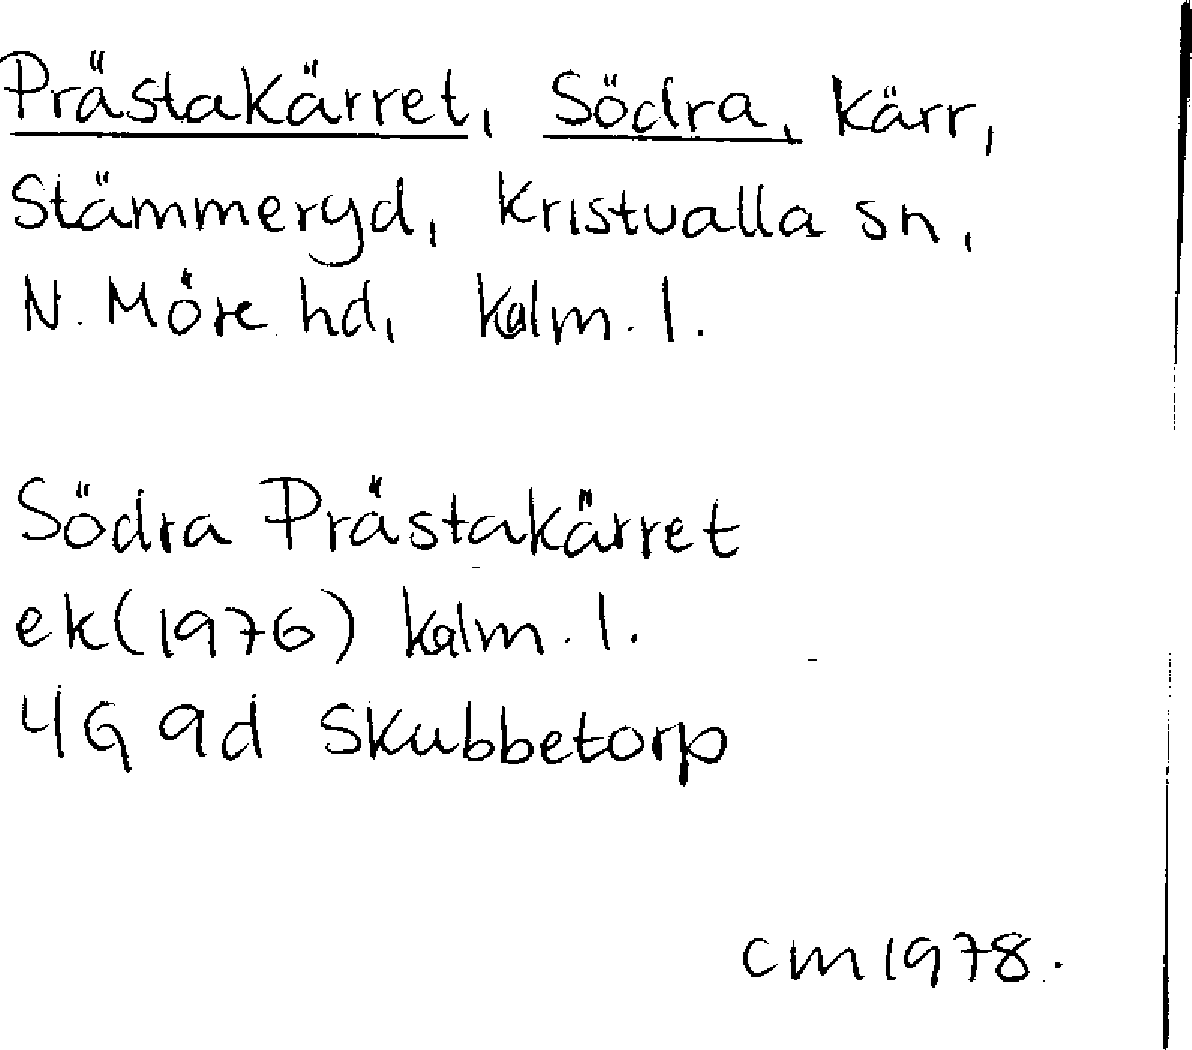 Prästakärret, Södra, kärr,
Stämmeryd, Kristvalla sn,
N. Möre hd, Kalm. l.
Södra Prästakärret
ek (1976) Kalm. l.
4G 9d Skubbetorp
CM 1978.